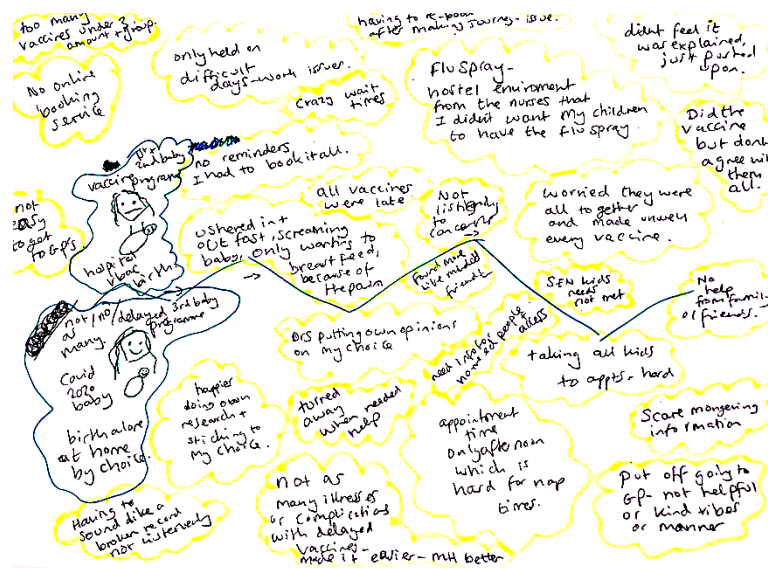 too many
vaccines under 2
amount + group.
only held on
difficult
days - work issues.
having to re-book
after making journey - issue.
didnt feel it
was explained,
just pushed
upon.
No online
booking
service
crazy wait
times
Flu spray -
hostel enviroment
from the nurses that
I didnt want my children
to have the flu spray.
Did the
vaccine
but dont
agree with
them
all.
2nd baby
vaccine
programe
no reminders
I had to book it all.
all vaccines
were late
Not
listening
to
concerns
worried they were
all together
and made unwell
every vaccine.
not
easy
to get
to GPs
hospital
vbac
birth.
ushered in +
out fast, screaming
baby, only wanting to
breastfeed,
because of
the pain
found more
like minded
friends
SEN kids
needs
not met
No
help
from family
or friends.
not / no / delayed
as
many.
3rd baby
programme
Covid
2020
baby
birth alone
at home
by choice.
DRS putting own opinions
on my choice
need info for people
no need access
taking all kids
to appts - hard
happier
doing own
research +
sticking to
my choice.
turned
away
when needed
help
appointment
time
only afternoon
which is
hard for nap
times.
Scare mongering
information
Having to
sound like a
broken record
not listened
not as
many illnesses
or complications
with delayed
vaccines -
made it easier - MH better
Put off going to
GP - not helpful
or kind vibes
or manner